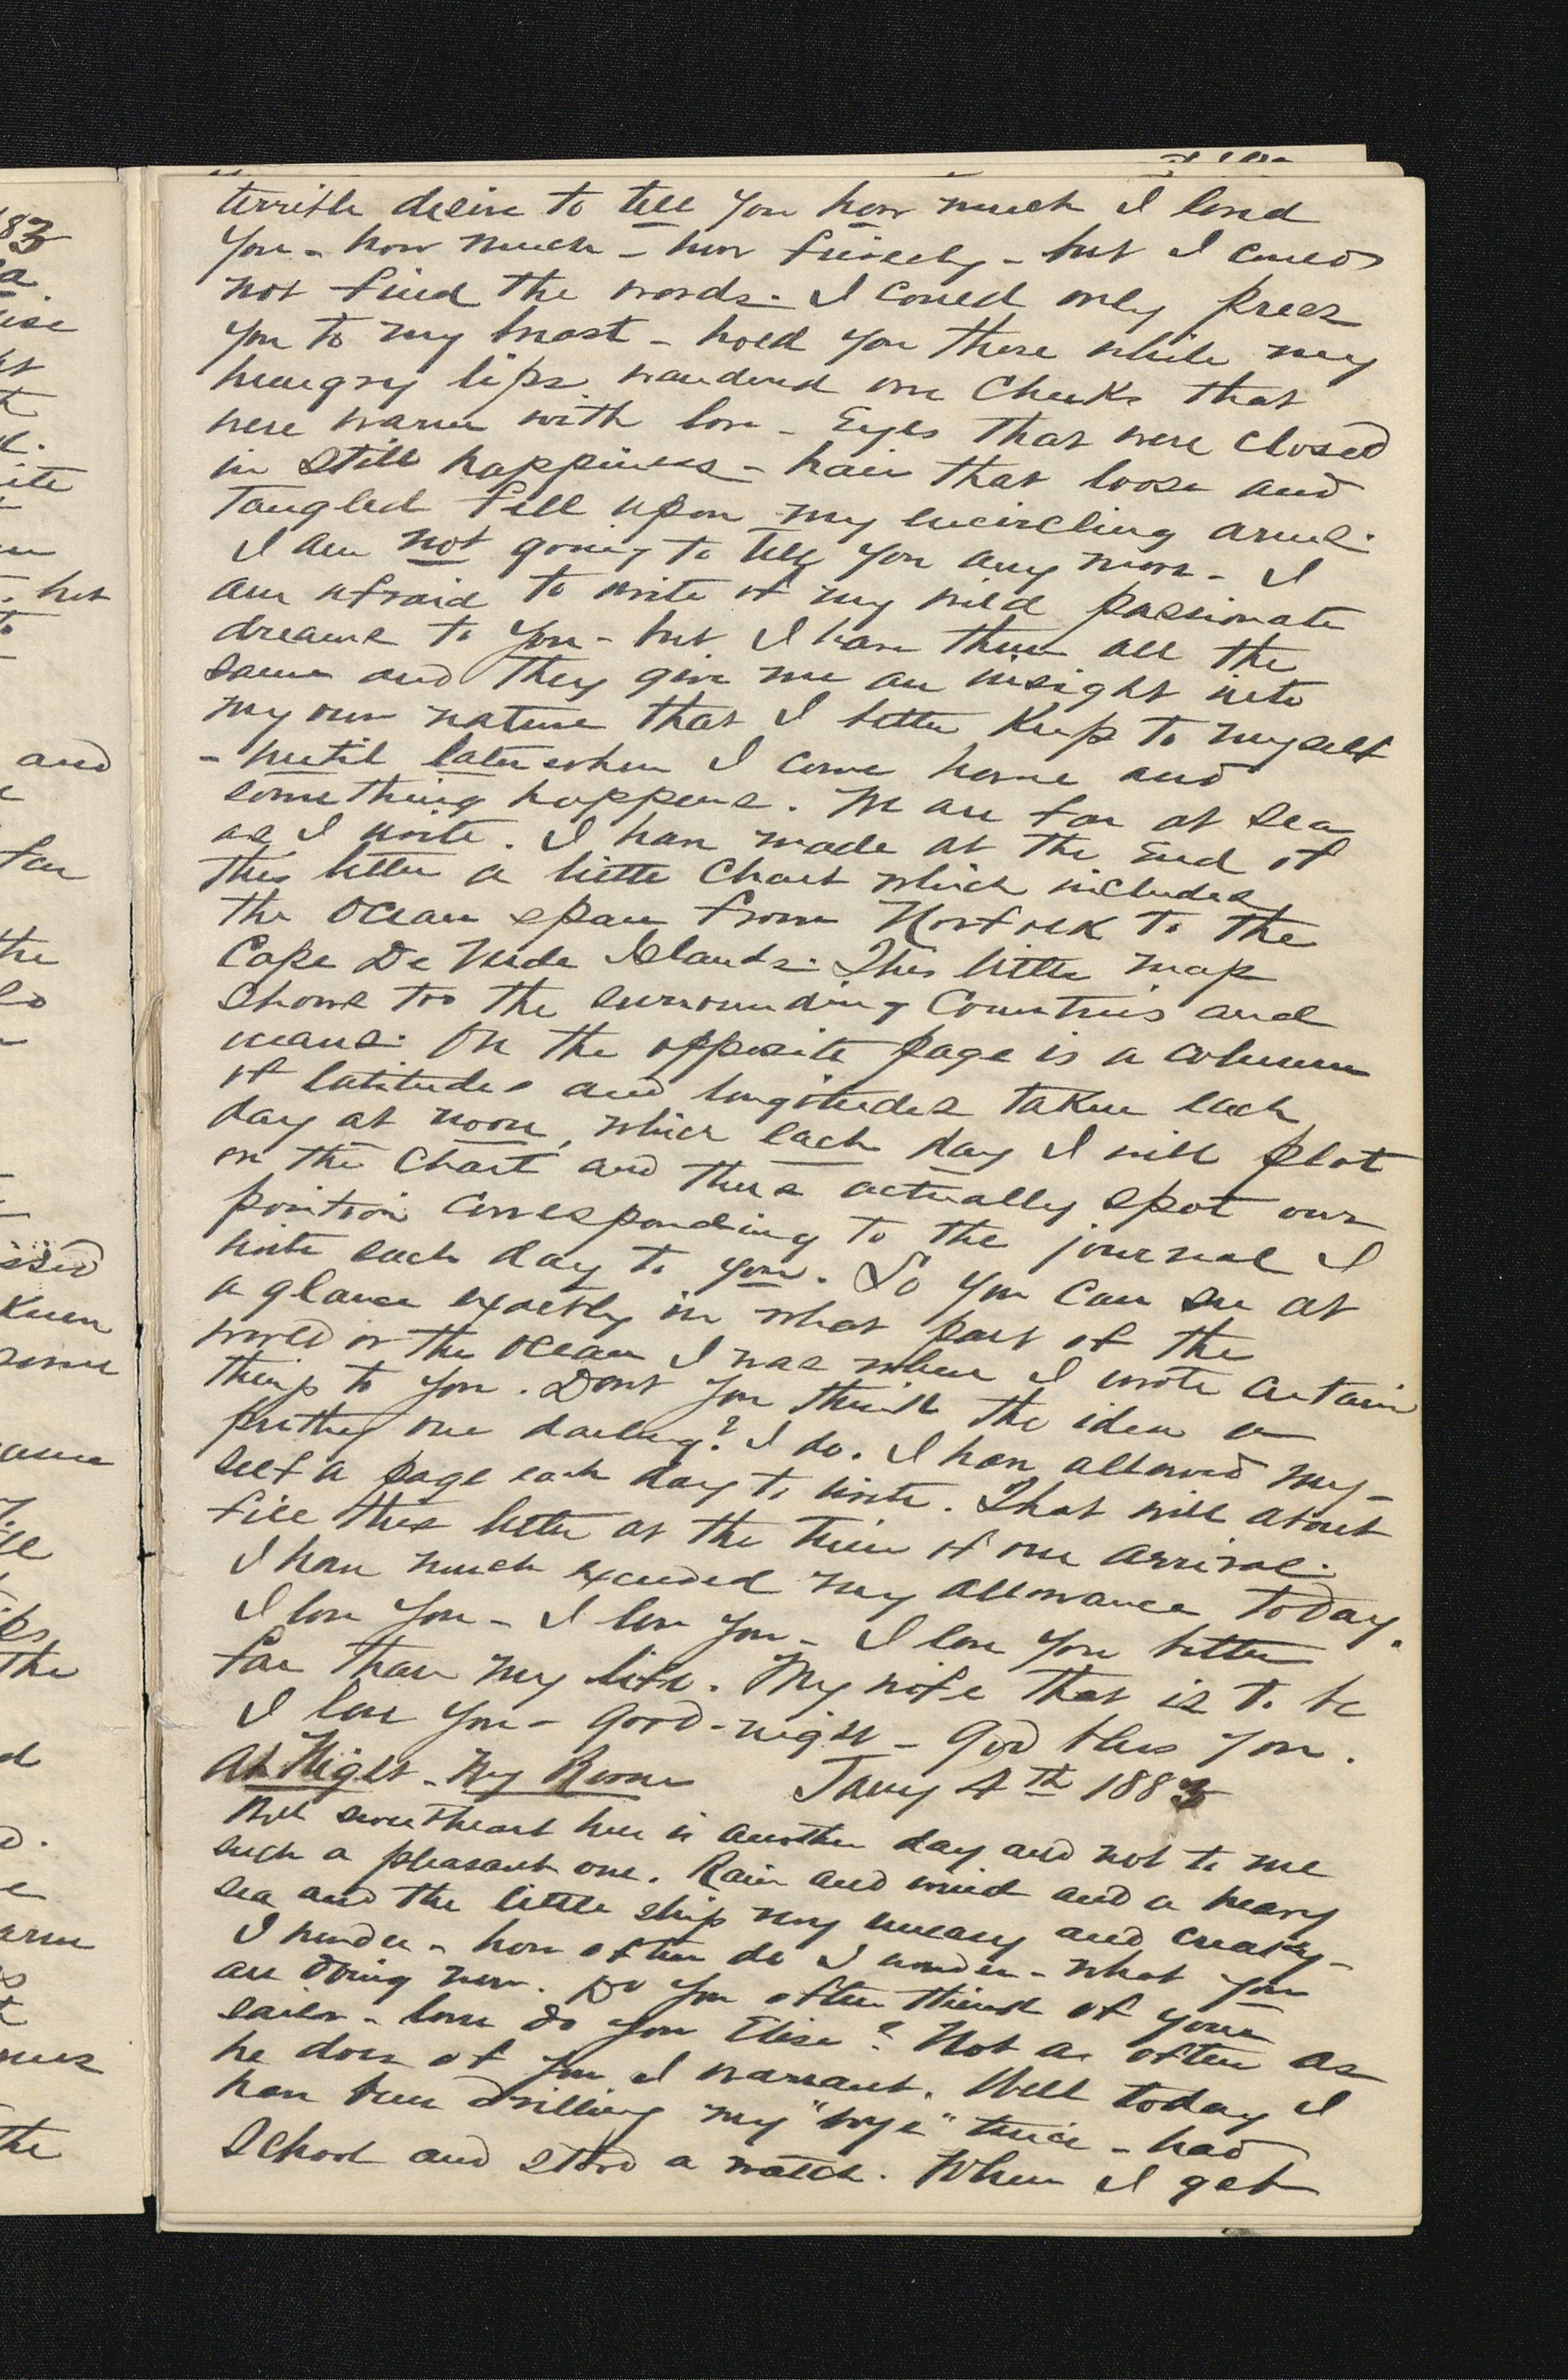 terrible desire to tell you how much I loved
you - how much - how fiercely - but I could
not find the words. I could only press
you to my breast - hold you there while my
hungry lips wandered over cheeks that
were warm with love - Eyes that were closed
in still happiness - hair that loose and
tangled fell upon my encircling arms.
I am not going to tell you any more - I
am afraid to write of my wild passionate
dreams to you - but I have them all the
same and they give me an insight into
my own nature that I better keep to myself
- until later when I come home and
something happens. We are far at sea
as I write. I have made at the End of
this letter a little chart which includes
the Ocean span from Norfolk to the
Cape De Verde Islands. This little map
shows too the surrounding Countries and
oceans. On the opposite page is a column
of latitudes and longitudes taken each
day at noon, which each day I will plot
on the Chart and thus actually spot our
position corresponding to the journal I
write each day to you. So you can see at
a glance exactly in what part of the
world or the Ocean I was when I wrote certain
things to you. Dont you think the idea a
pretty one darling? I do. I have allowed my-
self a page each day to write. That will about
fill this letter at the time of our arrival.
I have much exceeded my allowance today.
I love you - I love you - I love you better
far than my life. My wife that is to be
I love you - good-night - God bless you.
At Night - My Room Jany 4th 1883
Well sweetheart here is another day and not to me
such a pleasant one. Rain and wind and a heavy
sea and the little ship very uneasy and creaky -
I wonder - how often do I wonder - what you
are doing now. Do you often think of your
sailor - love do you Elise? Not as often as
he does of you I warrant. Well today I
have been drilling my "boys" twice - had
School and stood a watch. When I get
83
and
the
the
the